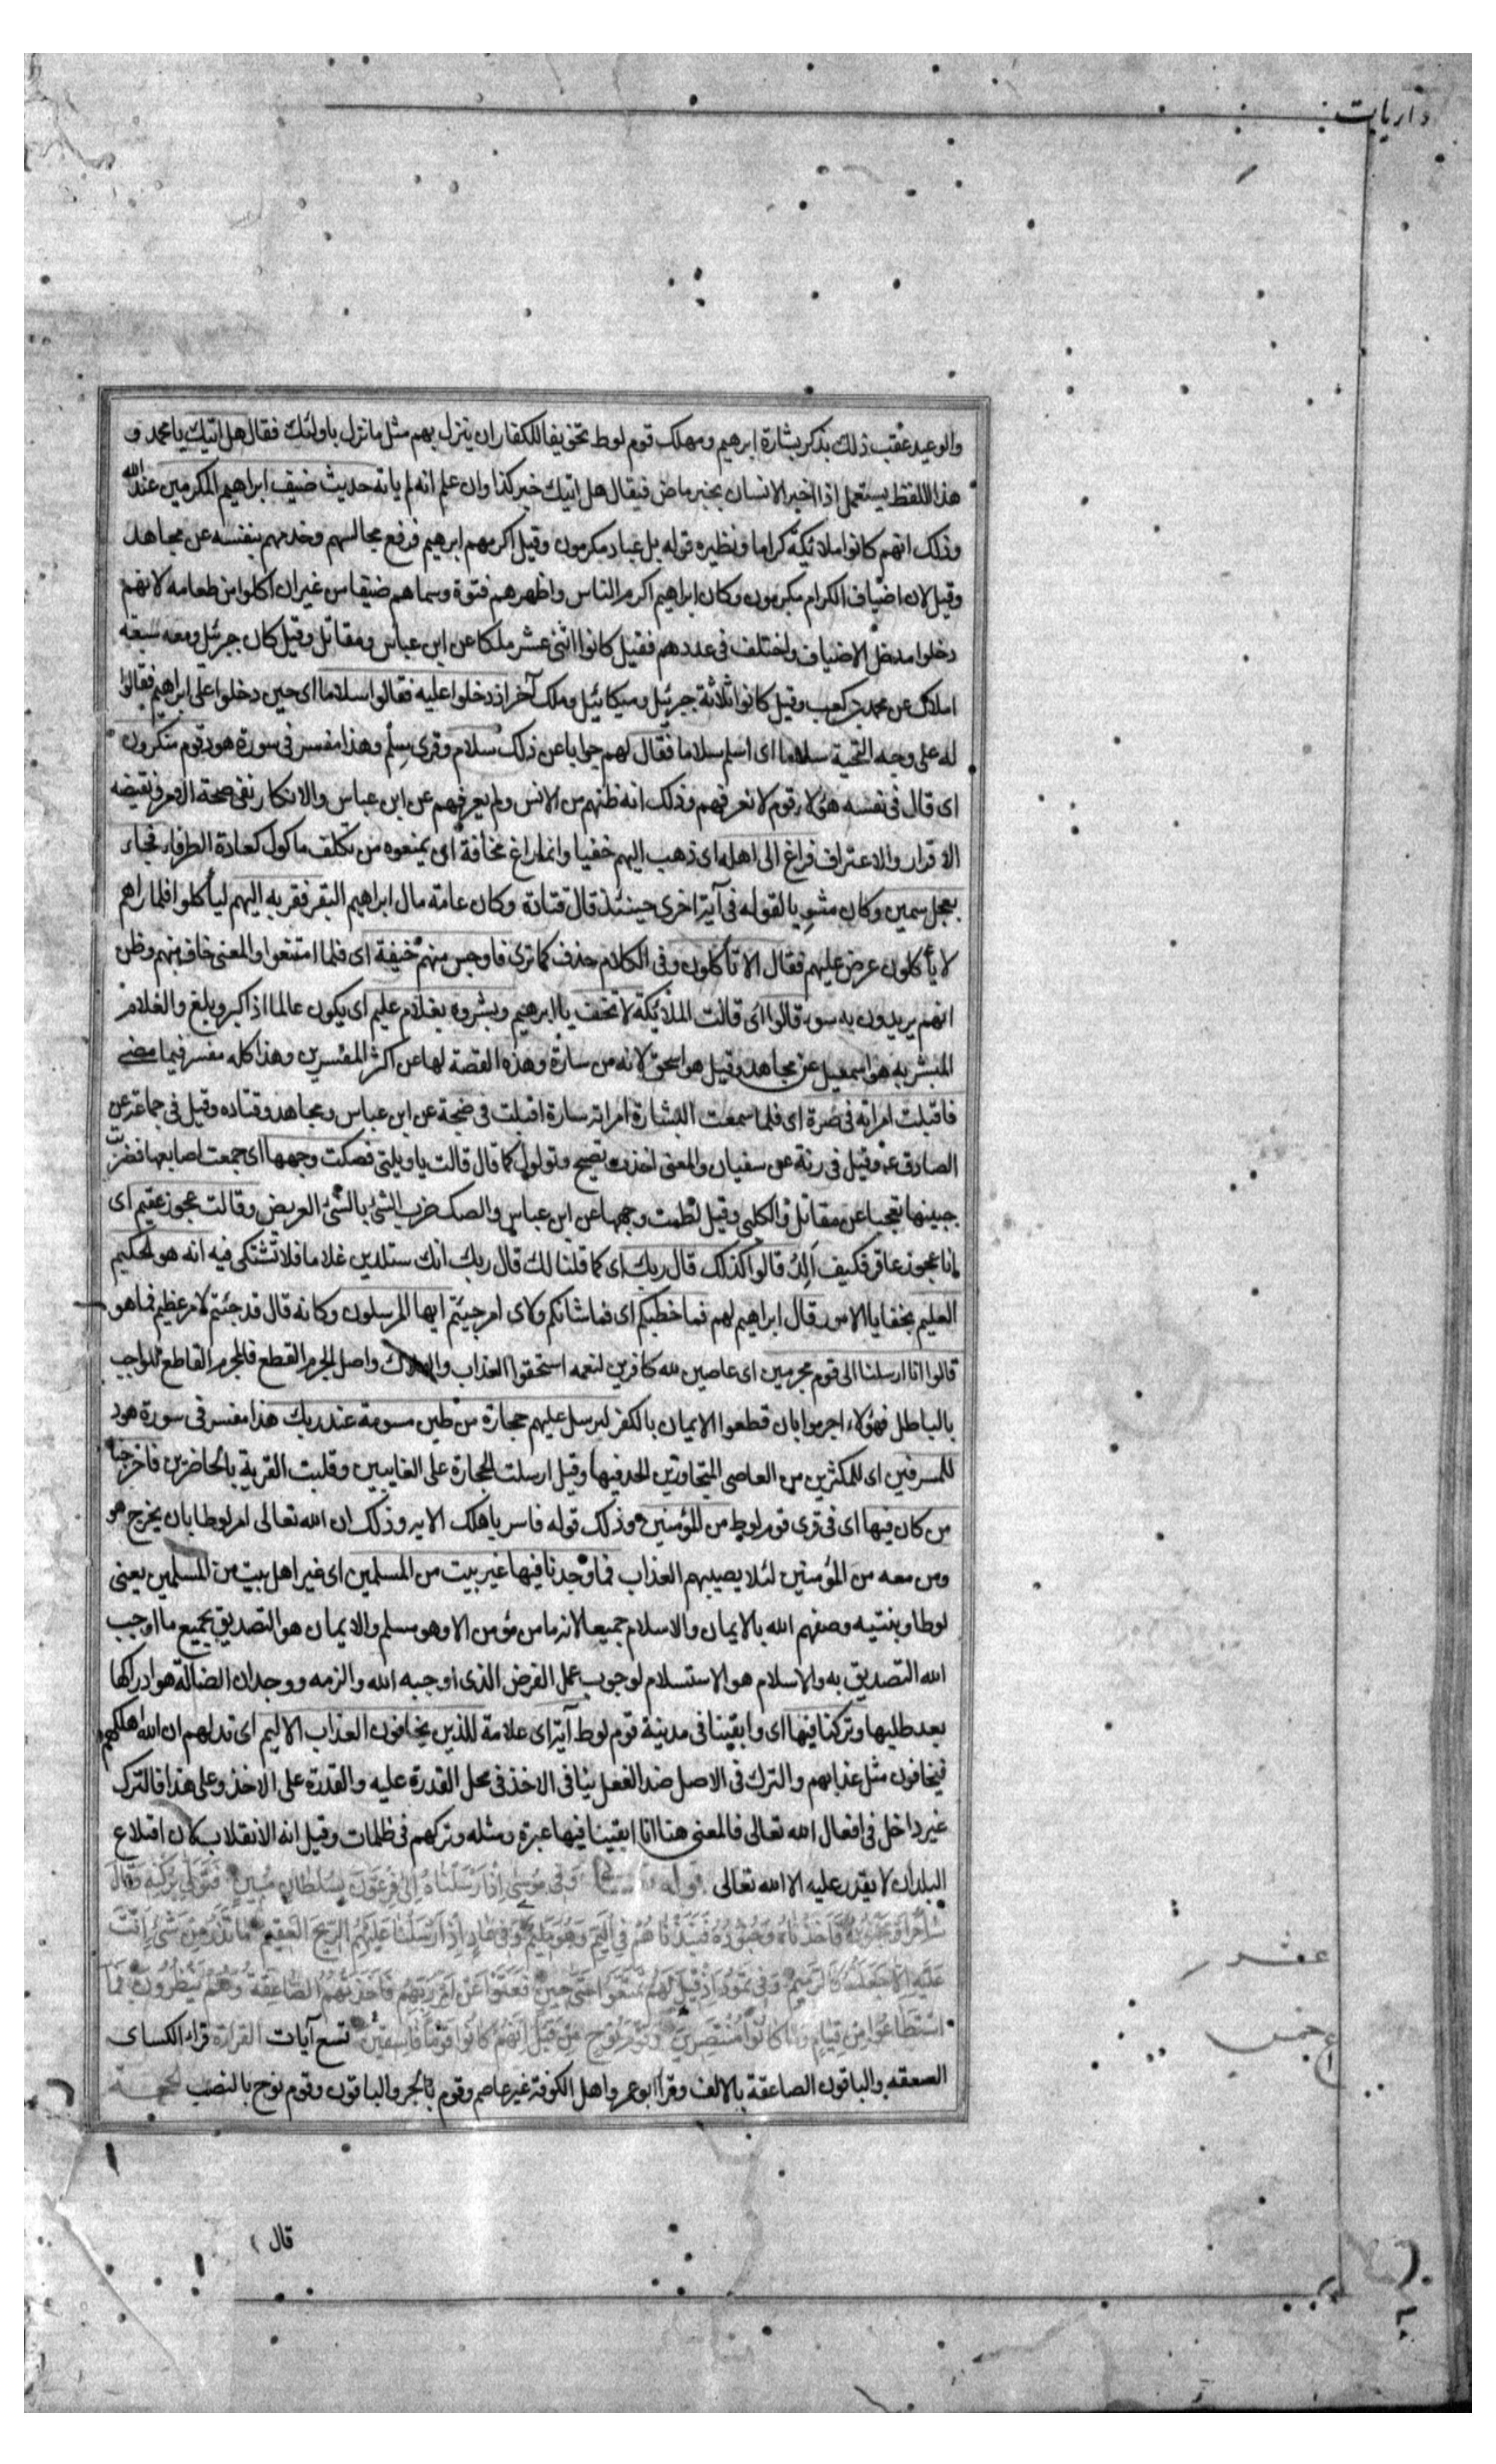 داريات
والوعيد عقب ذلك بذكر بشارة ابرهيم ومهلك قوم لوط تخويفا للكفار ان ينزل بهم مثل ما نزل باولئك فقال هل اتيك يا محمد و
هذا اللفظ يستعمل اذا اخبر الانسان بخبر ماض فيقال هل اتيك خبر كذا وان علم انه لم ياته حديث ضيف ابراهيم المكرمين عند الله
وذلك انهم كانوا ملائكة كراما ونظيره قوله بل عباد مكرمون وقيل اكرمهم ابرهيم فرفع مجالسهم وخدمهم بنفسه عن مجاهد
وقيل لان اضياف الكرام مكرمون وكان ابراهيم اكرم الناس واظهرهم فتوة وسماهم ضيفا من غير ان اكلوا من طعامه لانهم
دخلوا مدخل الاضياف واختلف فى عددهم فقيل كانوا اثنى عشر ملكا عن ابن عباس ومقاتل وقيل كان جبرئيل ومعه سبعة
املاك عن محمد بن كعب وقيل كانوا ثلاثة جبرئيل وميكائيل وملك آخر اذ دخلوا عليه فقالوا سلاما اى حين دخلوا على ابراهيم فقالوا
له على وجه التحية سلاما اى اسلم سلاما فقال لهم جوابا عن ذلك سلام وقرى سِلْم وهذا مفسر فى سورة هود قوم منكرون
اى قال فى نفسه هؤلاء قوم لا نعرفهم وذلك انه ظنهم من الانس ولم يعرفهم عن ابن عباس والانكار نفى صحة الامر ونقيضه
الاقرار والاعتراف فراغ الى اهله اى ذهب اليهم خفيا وانما راغ مخافة ان يمنعوه من تكلف ماكول كعادة الظرفاء فجاء
بعجل سمين وكان مشويا لقوله فى آية اخرى حينئذ قال قتادة وكان عامة مال ابراهيم البقر فقربه اليهم ليأكلوا فلما راهم
لا يأكلون عرض عليهم فقال الا تأكلون وفى الكلام حذف كما ترى فاوجس منهم خيفة اى فلما امتنعوا والمعنى خاف منهم وظن
انهم يريدون به سوء قالوا اى قالت الملائكة لا تخف يا ابرهيم وبشروه بغلام عليم اى يكون عالما اذا كبر وبلغ والغلام
المبشر به هو اسمعيل عن مجاهد وقيل هو اسحق لانه من سارة وهذه القصة لها عن اكثر المفسرين وهذا كله مفسر فيما مضى
فاقبلت امراته فى صرة اى فلما سمعت البشارة امراته سارة اقبلت فى ضجة عن ابن عباس ومجاهد وقتاده وقيل فى جماعة عن
الصادق ع وقيل فى رنة عن سفيان والمعنى اخذت تصيح وتولول كما قال قالت يا ويلتى فصكت وجهها اى جمعت اصابعها فضربت
جبينها تعجبا عن مقاتل والكلبى وقيل لطمت وجهها عن ابن عباس والصك ضرب الشئ بالشئ العريض وقالت عجوز عقيم اى
انا عجوز عاقر فكيف اَلِدُ قالوا كذلك قال ربك اى كما قلنا لك قال ربك انك ستلدين غلاما فلا تشتكى فيه انه هو الحكيم
العليم بخفايا الامور قال ابراهيم لهم فما خطبكم اى فما شانكم ولاى امر جئتم ايها المرسلون وكانه قال قد جئتم لامر عظيم فما هو
قالوا انا ارسلنا الى قوم مجرمين اى عاصين لله كافرين لنعمه استحقوا العذاب والهلاك واصل الجرم القطع فالمجرم القاطع للواجب
بالباطل فهؤلاء اجرموا بان قطعوا الايمان بالكفر لنرسل عليهم حجارة من طين مسومة عند ربك هذا مفسر فى سورة هود
للمسرفين اى للمكثرين من المعاصى المتجاوزين الحد فيها وقيل ارسلت الحجارة على الغايبين وقلبت القرية بالحاضرين فاخرجنا
من كان فيها اى فى قرى قوم لوط من المؤمنين وذلك قوله فاسر باهلك الاية وذلك ان الله تعالى امر لوطا بان يخرج هو
ومن معه من المؤمنين لئلا يصيبهم العذاب فما وجدنا فيها غير بيت من المسلمين اى غير اهل بيت من المسلمين يعنى
لوطا وبنتيه وصفهم الله بالايمان والاسلام جميعا لانه ما من مؤمن الا وهو مسلم والايمان هو التصديق بجميع ما اوجب
الله التصديق به والاسلام هو الاستسلام لوجوب عمل الفرض الذى اوجبه الله والزمه ووجدان الضالة هو ادراكها
بعد طلبها وتركنا فيها اى وابقينا فى مدينة قوم لوط آية اى علامة للذين يخافون العذاب الاليم اى تدلهم ان الله اهلكهم
فيخافون مثل عذابهم والترك فى الاصل ضد الفعل ينافى الاخذ فى محل القدرة عليه والقدرة على الاخذ وعلى هذا فالترك
غير داخل فى افعال الله تعالى فالمعنى هنا انا ابقينا فيها عبرة ومثله وتركهم فى ظلمات وقيل انه الانقلاب كان اقتلاع
البلدان لا يقدر عليه الا الله تعالى قوله وَفى مُوسى اِذ اَرْسَلْناهُ اِلى فِرْعَوْنَ بِسُلْطانٍ مُبينٍ فَتَوَلّى بِرُكْنِه وَقالَ
ساحِرٌ اَوْ مَجْنُونٌ فَاَخَذْناهُ وَجُنُودَهُ فَنَبَذْناهُمْ فِى الْيَمِّ وَهُوَ مُليمٌ وَفى عادٍ اِذْ اَرْسَلْنا عَلَيْهِمُ الرّيحَ الْعَقيمَ ما تَذَرُ مِنْ شَىْءٍ اَتَتْ
عَلَيْهِ اِلّا جَعَلَتْهُ كَالرَّميمِ وَفى ثَمُودَ اِذْ قيلَ لَهُمْ تَمَتَّعُوا حَتّى حينٍ فَعَتَوْا عَنْ اَمْرِ رَبِّهِمْ فَاَخَذَتْهُمُ الصّاعِقَةُ وَهُمْ يَنْظُرُونَ فَمَا
اسْتَطاعُوا مِنْ قِيامٍ وَما كانُوا مُنْتَصِرينَ وَقَوْمَ نُوحٍ مِنْ قَبْلُ اِنَّهُمْ كانُوا قَوْماً فاسِقينَ تسع آيات القراءة قراء الكساى
الصعقة والباقون الصاعقة بالالف وقرأ ابو عمرو واهل الكوفة غير عاصم وقوم بالجر والباقون وقوم نوح بالنصب الحجة
عشر
خمس
قال